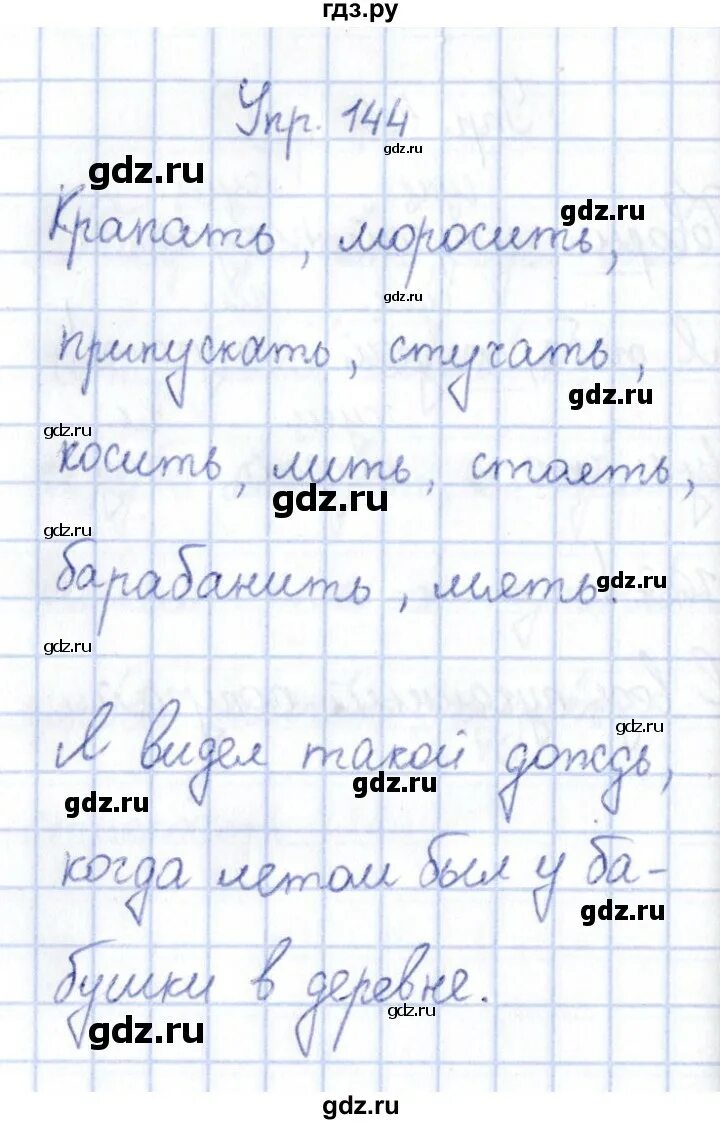 гдз.ру
Упр. 144
gdz.ru
gdz.ru
gdz.ru
Крапать, моросить,
gdz.ru
припускать, стучать,
gdz.ru
gdz.ru
косить, лить, стоять,
gdz.ru
gdz.ru
барабанить, миять.
gdz.ru
gdz.ru
gdz.ru
Я видел такой дождь,
gdz.ru
gdz.ru
когда летом был у ба-
gdz.ru
бушки в деревне.
gdz.ru
gdz.ru
gdz.ru